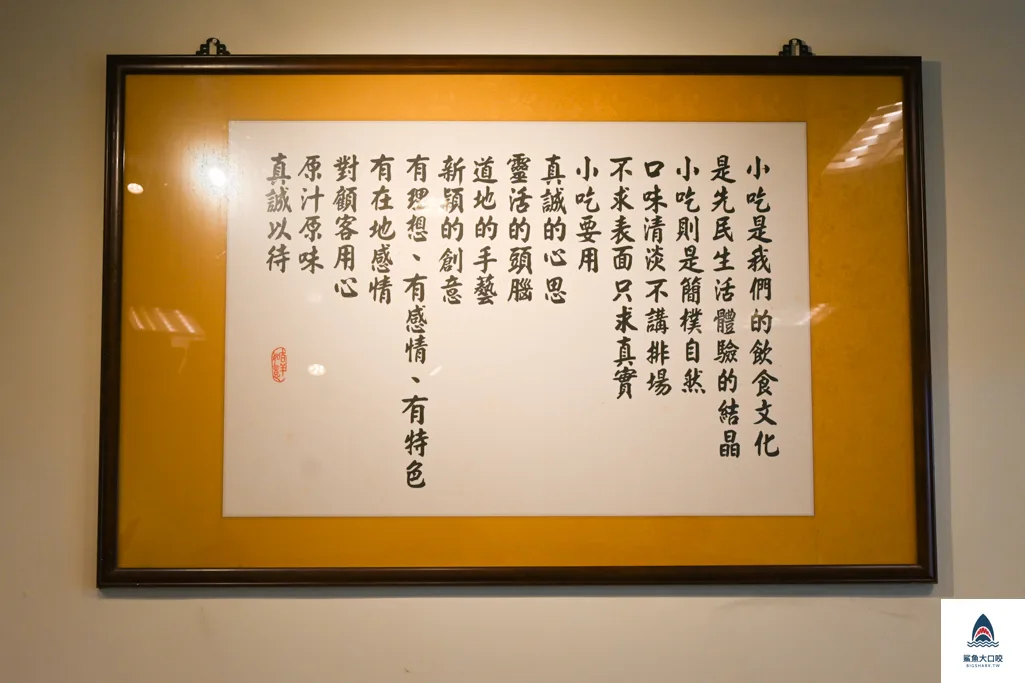 小吃是我們的飲食文化
是先民生活體驗的結晶
小吃則是簡樸自然
口味清淡不講排場
不求表面只求真實
小吃要用
真誠的心思
靈活的頭腦
道地的手藝
新穎的創意
有理想、有感情、有特色
有在地感情
對顧客用心
原汁原味
真誠以待
鯊魚大口咬
BIGSHARK.TW